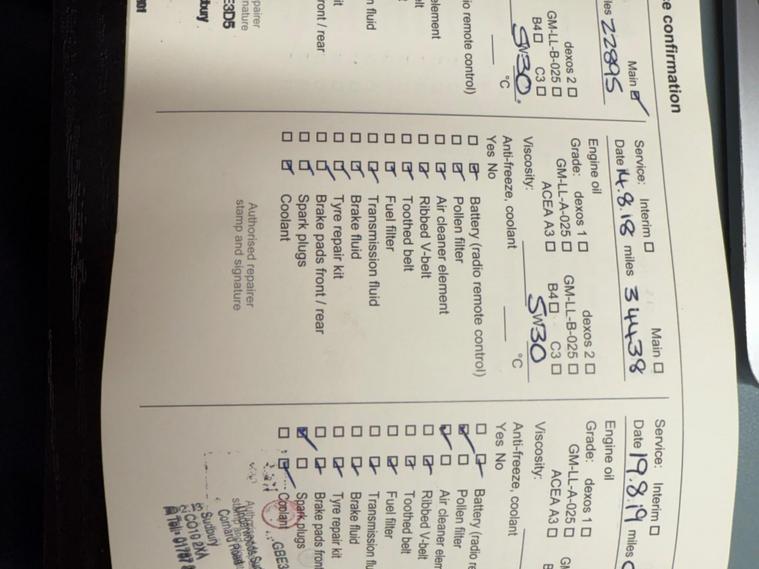 e confirmation
Main ☑
les 22895
dexos 2 ☐
GM-LL-B-025 ☐
B4 ☐ C3 ☐
5W30.
°C
dio remote control)
element
elt
n fluid
it
ront / rear
pairer
nature
E3D5
dbury
Service: Interim ☐ Main ☐
Date 14.8.18 miles 34438
Engine oil
Grade: dexos 1 ☐ dexos 2 ☐
GM-LL-A-025 ☐ GM-LL-B-025 ☐
ACEA A3 ☐ B4 ☐ C3 ☐
Viscosity: 5W30
Anti-freeze, coolant °C
Yes No
☐ ☑ Battery (radio remote control)
☐ ☑ Pollen filter
☐ ☑ Air cleaner element
☐ ☑ Ribbed V-belt
☐ ☑ Toothed belt
☐ ☑ Fuel filter
☐ ☑ Transmission fluid
☐ ☑ Brake fluid
☐ ☑ Tyre repair kit
☐ ☑ Brake pads front / rear
☐ ☑ Spark plugs
☐ ☑ Coolant
Authorised repairer
stamp and signature
Service: Interim ☐
Date 19.8.19 miles
Engine oil
Grade: dexos 1 ☐
GM-LL-A-025 ☐ GM
ACEA A3 ☐ B
Viscosity:
Anti-freeze, coolant
Yes No
☐ ☑ Battery (radio re
☑ ☐ Pollen filter
☑ ☐ Air cleaner elem
☐ ☑ Ribbed V-belt
☐ ☑ Toothed belt
☐ ☑ Fuel filter
☐ ☑ Transmission flu
☐ ☑ Brake fluid
☐ ☑ Tyre repair kit
☐ ☑ Brake pads front
☑ ☐ Spark plugs
☐ ☑ Coolant
GBE3
Sudbury
CO10 2XA
Tel: 01787